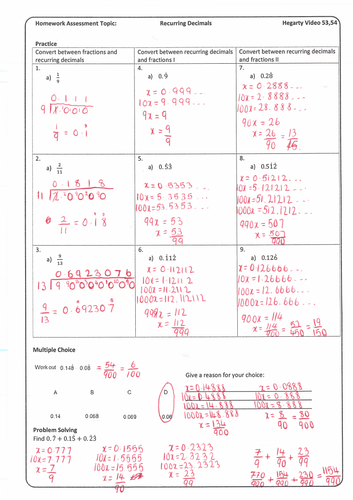 Homework Assessment Topic: Recurring Decimals Hegarty Video 53,54
Practice
Convert between fractions and recurring decimals
Convert between recurring decimals and fractions I
Convert between recurring decimals and fractions II
1.
a) 1/9
0.111
9 1.0 0 0
1/9 = 0.1̇
4.
a) 0.9̇
x = 0.999...
10x = 9.999...
9x = 9
x = 9/9
7.
a) 0.28̇
x = 0.2888...
10x = 2.8888...
100x = 28.888...
90x = 26
x = 26/90 = 13/45
2.
a) 2/11
0.1818
11
2/11 = 0.1̇8̇
5.
a) 0.5̇3̇
x = 0.5353...
10x = 5.3535...
100x = 53.5353...
99x = 53
x = 53/99
8.
a) 0.51̇2̇
x = 0.51212...
10x = 5.121212...
100x = 51.21212...
1000x = 512.1212...
990x = 507
x = 507/990
3.
a) 9/13
0.6923076
13
9/13 = 0.6̇92307̇
6.
a) 0.1̇12̇
x = 0.112112
10x = 1.12112
100x = 11.2112
1000x = 112.112112
999x = 112
x = 112/999
9.
a) 0.126̇
x = 0.126666...
10x = 1.26666...
100x = 12.6666...
1000x = 126.666...
900x = 114
x = 114/900 = 57/450 = 19/150
Multiple Choice
Work out 0.148̇ - 0.08̇ = 54/900 = 6/100
A B C D
0.14 0.068 0.069 0.06
Give a reason for your choice:
x = 0.14888
10x = 1.4888
100x = 14.888
1000x = 148.888
x = 134/900
x = 0.0888
10x = 0.888
100x = 8.88
x = 8/90 = 80/900
Problem Solving
Find 0.7̇ + 0.15̇ + 0.2̇3̇
x = 0.777
10x = 7.777
x = 7/9
x = 0.1555
10x = 1.5555
100x = 15.555
x = 14/90
x = 0.2323
10x = 2.3232
100x = 23.2323
x = 23/99
7/9 + 14/90 + 23/99
770/990 + 154/990 + 230/990 = 1154/990